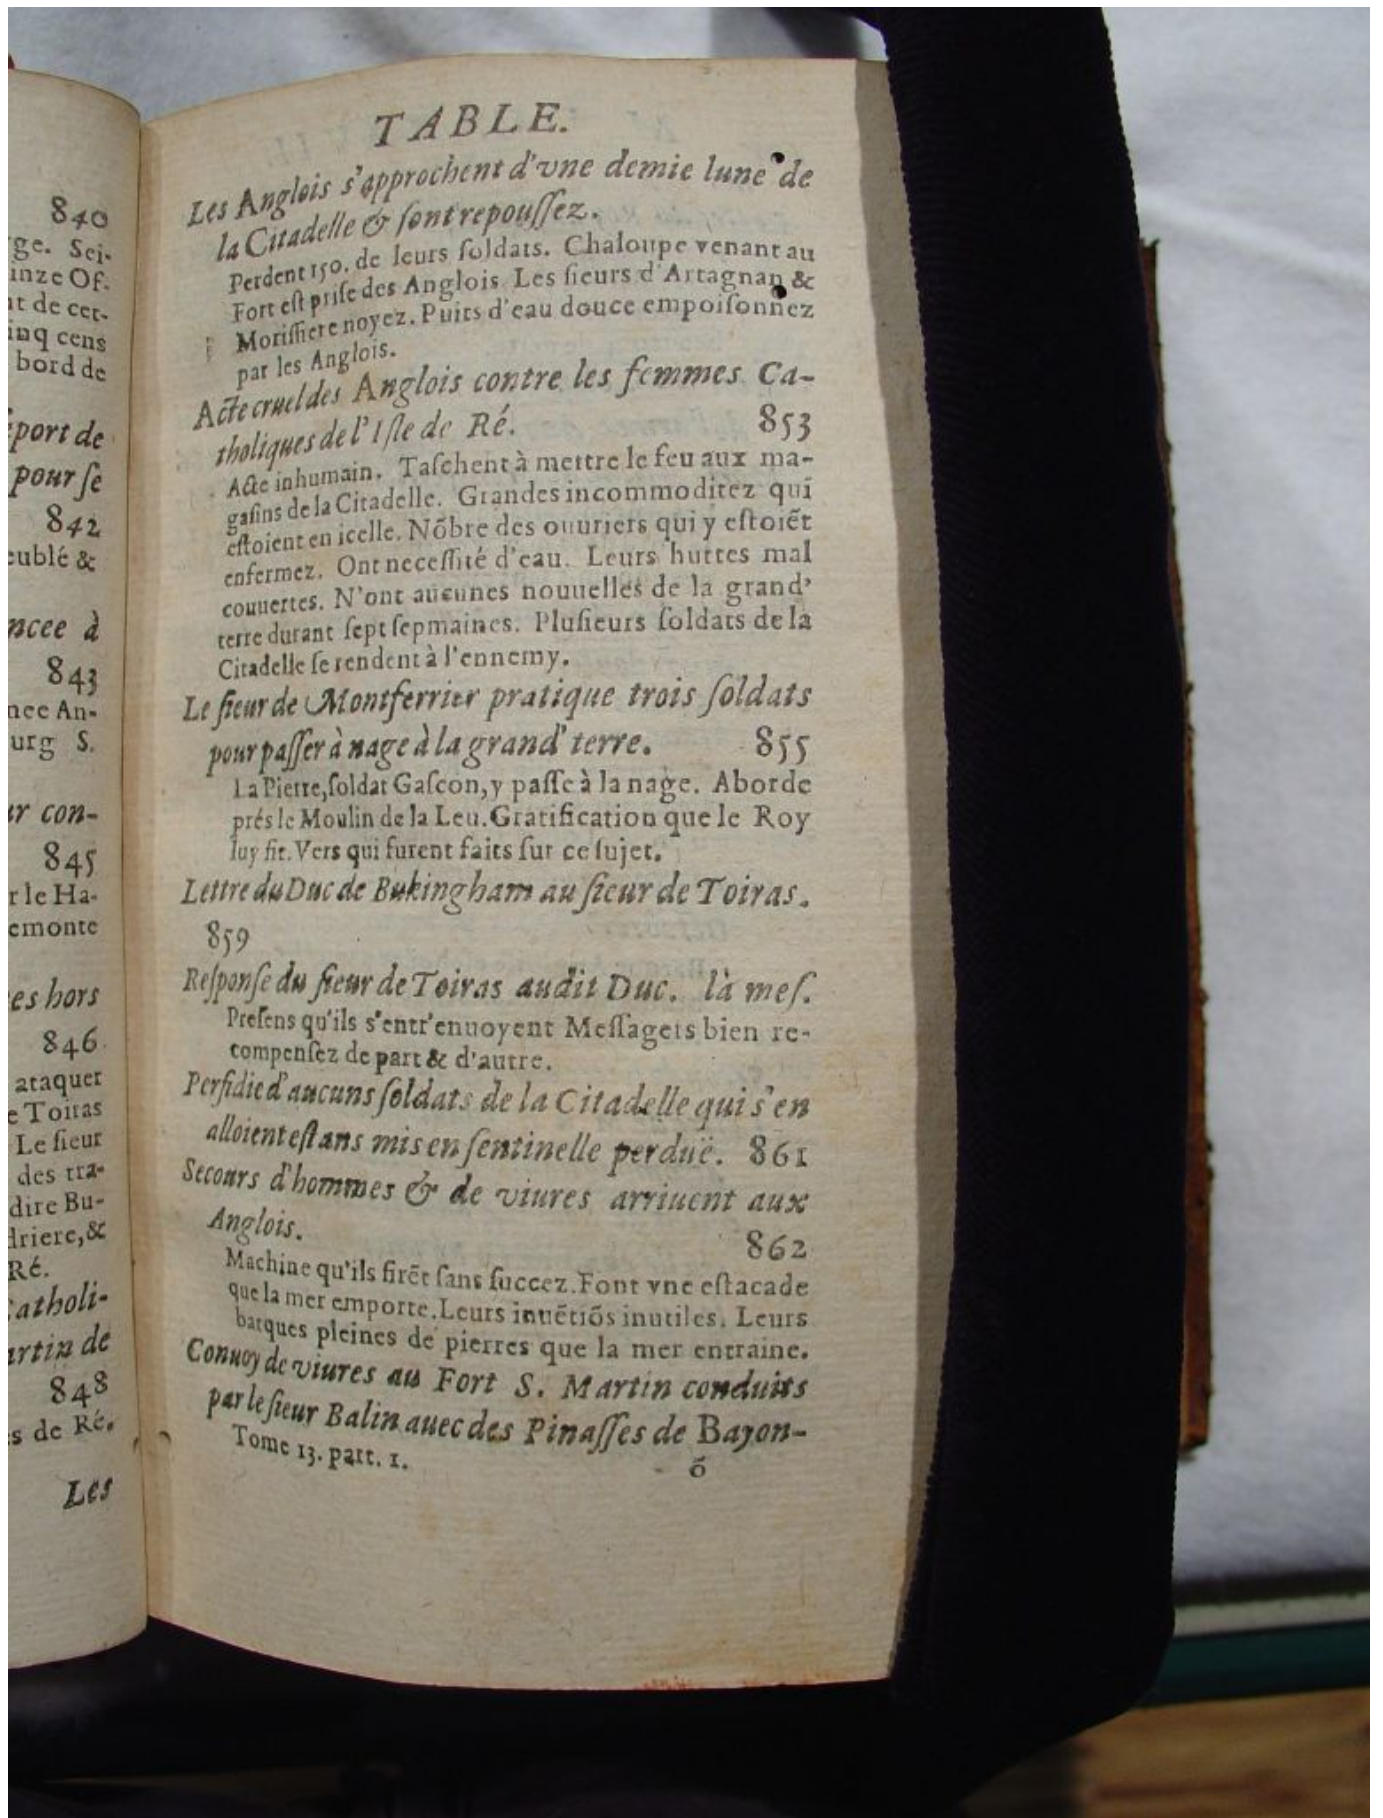 840
ge. Sei-
inze Of-
nt de cer-
inq cens
bord de
port de
pour ſe
842
eublé &
ncee à
843
nee An-
urg S.
ur con-
845
r le Ha-
emonte
es hors
846.
ataquer
e Toiras
Le ſieur
des tra-
dire Bu-
driere, &
Ré.
Catholi-
artin de
848
s de Ré.
Les
TABLE.
Les Anglois s'approchent d'vne demie lune de
la Citadelle & ſont repouſſez.
Perdent 150. de leurs ſoldats. Chaloupe venant au
Fort eſt priſe des Anglois Les ſieurs d'Artagnan &
Moriſſiere noyez. Puits d'eau douce empoiſonnez
par les Anglois.
Acte cruel des Anglois contre les femmes Ca-
tholiques de l'Iſle de Ré. 853
Acte inhumain. Taſchent à mettre le feu aux ma-
gaſins de la Citadelle. Grandes incommoditez qui
eſtoient en icelle. Nõbre des ouuriers qui y eſtoiẽt
enfermez. Ont neceſſité d'eau. Leurs huttes mal
couuertes. N'ont aucunes nouuelles de la grand'
terre durant ſept ſepmaines. Pluſieurs ſoldats de la
Citadelle ſe rendent à l'ennemy.
Le ſieur de Montferrier pratique trois ſoldats
pour paſſer à nage à la grand' terre. 855
La Pierre, ſoldat Gaſcon, y paſſe à la nage. Aborde
prés le Moulin de la Leu. Gratification que le Roy
luy fit. Vers qui furent faits ſur ce ſujet.
Lettre du Duc de Bukingham au ſieur de Toiras.
859
Reſponſe du ſieur de Toiras audit Duc. là meſ.
Preſens qu'ils s'entr'enuoyent Meſſagers bien re-
compenſez de part & d'autre.
Perfidie d'aucuns ſoldats de la Citadelle qui s'en
alloient eſtans mis en ſentinelle perduë. 861
Secours d'hommes & de viures arriuent aux
Anglois. 862
Machine qu'ils firẽt ſans ſuccez. Font vne eſtacade
que la mer emporte. Leurs inuẽtiõs inutiles. Leurs
barques pleines de pierres que la mer entraine.
Conuoy de viures au Fort S. Martin conduits
par le ſieur Balin auec des Pinaſſes de Bayon-
Tome 13. part. 1. õ